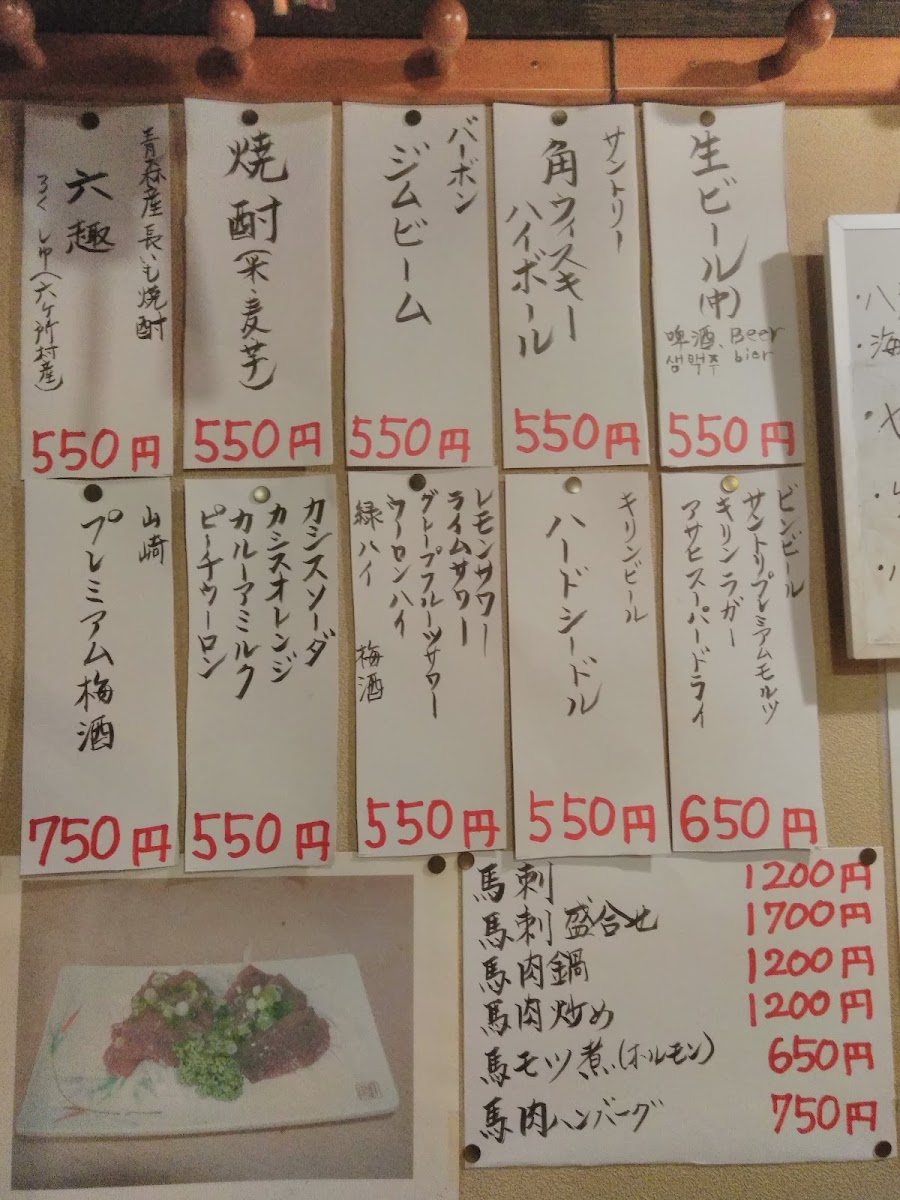 サントリー
生ビール(中)
啤酒、Beer
생맥주 bier
550円
角ウィスキー
ハイボール
550円
バーボン
ジムビーム
550円
焼酎(米・麦・芋)
550円
青森産長いも焼酎
六趣
ろくしゅ(六ヶ所村産)
550円
ビンビール
サントリプレミアムモルツ
キリンラガー
アサヒスーパードライ
650円
キリンビール
ハードシードル
550円
レモンサワー
ライムサワー
グレープフルーツサワー
ウーロンハイ
緑ハイ 梅酒
550円
カシスソーダ
カシスオレンジ
カルーアミルク
ピーチウーロン
550円
山崎
プレミアム梅酒
750円
馬刺 1200円
馬刺盛合せ 1700円
馬肉鍋 1200円
馬肉炒め 1200円
馬モツ煮(ホルモン) 650円
馬肉ハンバーグ 750円